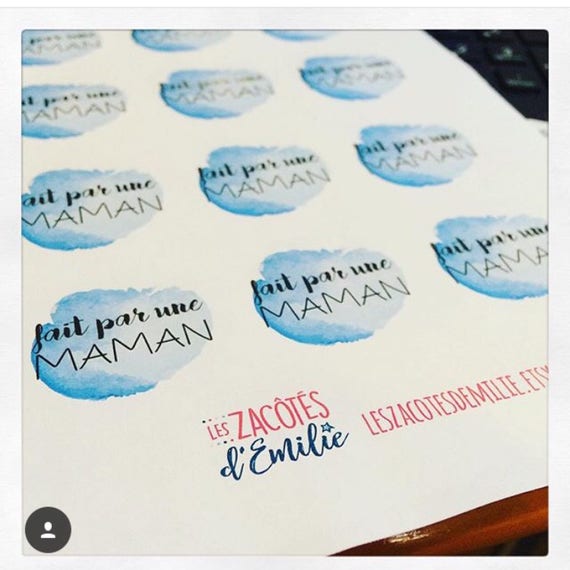 MAMAN
MAMAN
MAMAN
MAMAN
fait par une
MAMAN
fait par une
MAMAN
fait par une
MAMAN
fait par une
MAMAN
fait par une
MAMAN
fait par une
MAMAN
fait par une
MAMAN
fait par une
MAMAN
fait par une
MAMAN
LES ZACÔTÉS
d'Emilie
LESZACOTESDEMILIE.ETSY